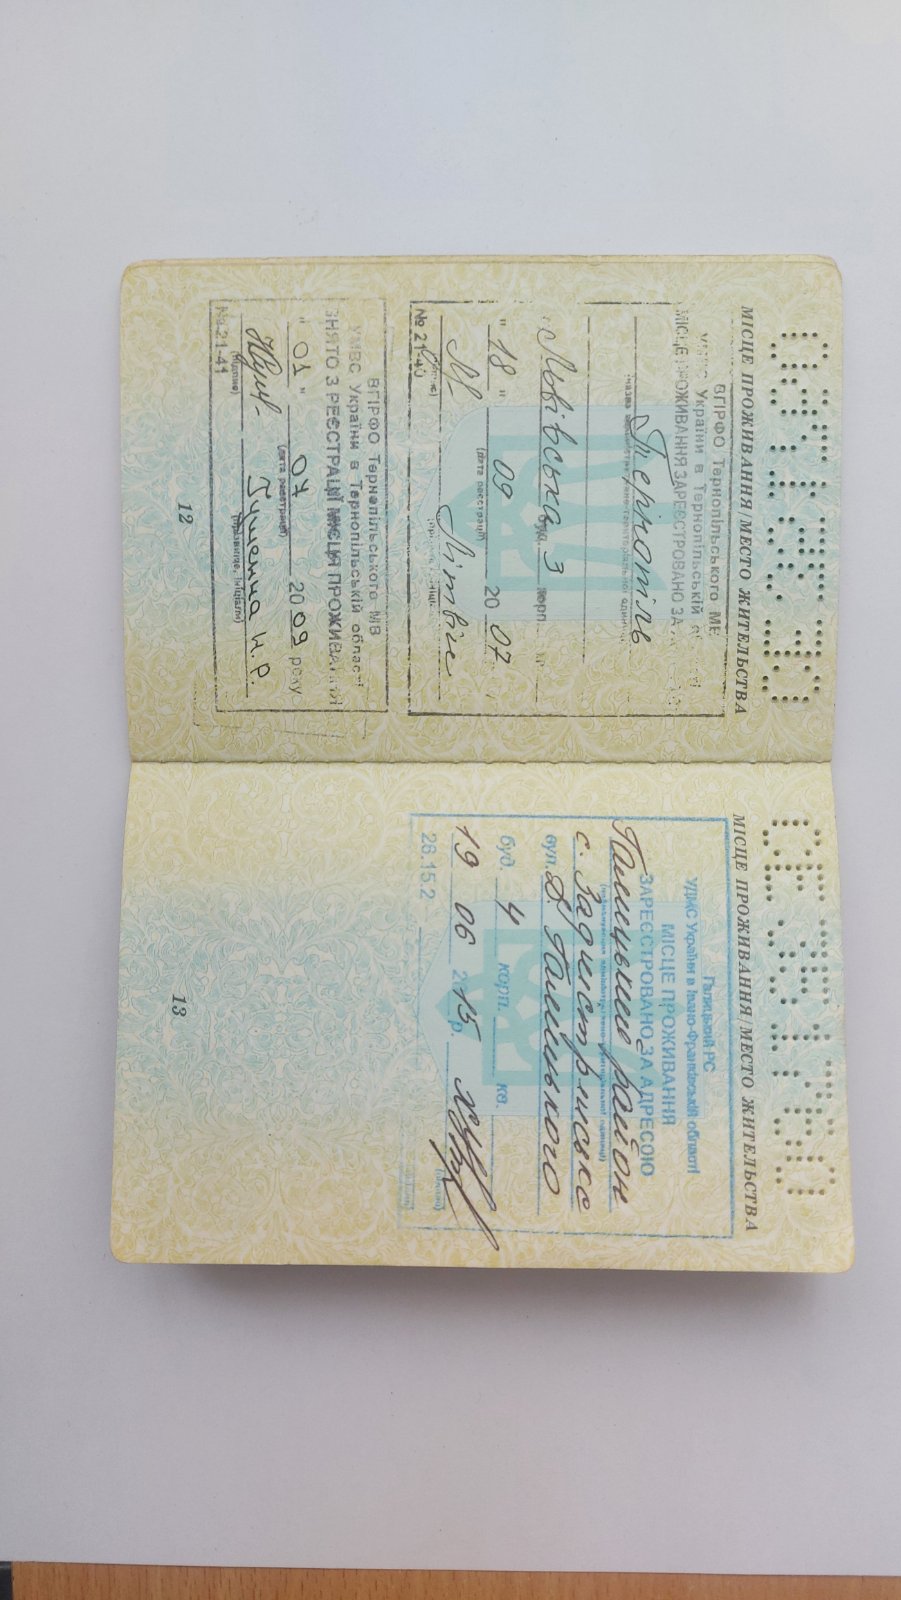 МІСЦЕ ПРОЖИВАННЯ/МЕСТО ЖИТЕЛЬСТВА
ВГІРФО Тернопільського МВ
України в Тернопільській
МІСЦЕ ПРОЖИВАННЯ ЗАРЕЄСТРОВАНО ЗА
Тернопіль
Львівська 3
"18" 09 2007
(дата реєстрації)
Літвін
№ 21-40
ВГІРФО Тернопільського МВ
УМВС України в Тернопільській області
ЗНЯТО З РЕЄСТРАЦІЇ МІСЦЯ ПРОЖИВАННЯ
"01" 07 2009 року
(дата реєстрації)
Н.Р.
(підпис) (прізвище, ініціали)
№ 21-41
12
МІСЦЕ ПРОЖИВАННЯ/МЕСТО ЖИТЕЛЬСТВА
Галицький РС
УДМС України в Івано-Франківській області
МІСЦЕ ПРОЖИВАННЯ
ЗАРЕЄСТРОВАНО ЗА АДРЕСОЮ
Галицький район
с. Задністрянське
вул. Д Галицького
буд. 4 корп. кв.
19 06 2015 р.
(підпис)
26.15.2
13